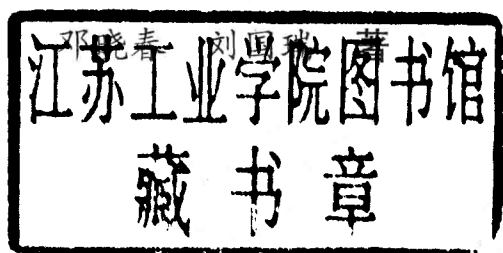 邓晓春 刘国瑞 著
江苏工业学院图书馆
藏书章